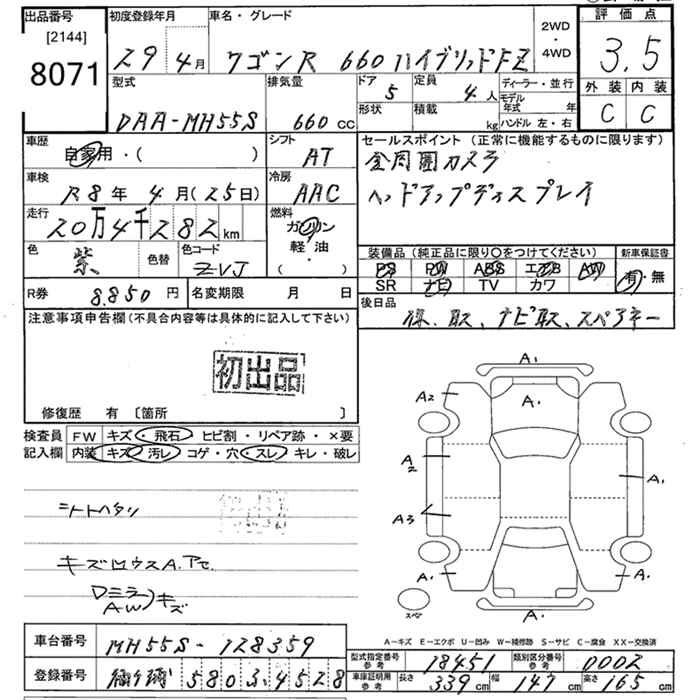 出品番号 初度登録年月 車名・グレード 2WD・4WD 評価点
[2144]
8071 29年4月 ワゴンR 660ハイブリッドFZ 3.5
型式 排気量 ドア 定員 ディーラー・並行 外装 内装
5 4人 モデル年式 年 C C
DAA-MH55S 660cc 形状 積載 kg ハンドル 左・右
車歴 シフト セールスポイント (正常に機能するものに限ります)
自家用・( ) AT 全周囲カメラ
車検 冷房 ヘッドアップディスプレイ
R8年4月(25日) AAC
走行 燃料
20万4千282km ガソリン
軽油
・
( )
色 色替 色コード 装備品 (純正品に限り○をつけてください) 新車保証書
紫 ZVJ PS PW ABS エアB AW 有・無
SR ナビ TV カワ
R券 8.850円 名変期限 月 日 後日品
保、取、ナビ取、スペアキー
注意事項申告欄(不具合内容等は具体的に記入して下さい)
初出品
修復歴 有 〔箇所 〕
検査員 FW キズ・飛石・ヒビ割・リペア跡・×要
記入欄 内装 キズ・汚レ・コゲ・穴・スレ・キレ・破レ
シートヘタリ
A1
A2 A1
A2 A1
A3
A1 A1
A1
スペア
Dミラ
AW キズ
A-キズ E-エクボ U-凹み W-補修跡 S-サビ C-腐食 XX-交換済
車台番号 MH55S-128359
登録番号 580 3 4528
型式指定番号 参考 18451 類別区分番号 参考 0002
車庫証明用 参考 長さ 339cm 幅 147cm 高さ 165cm